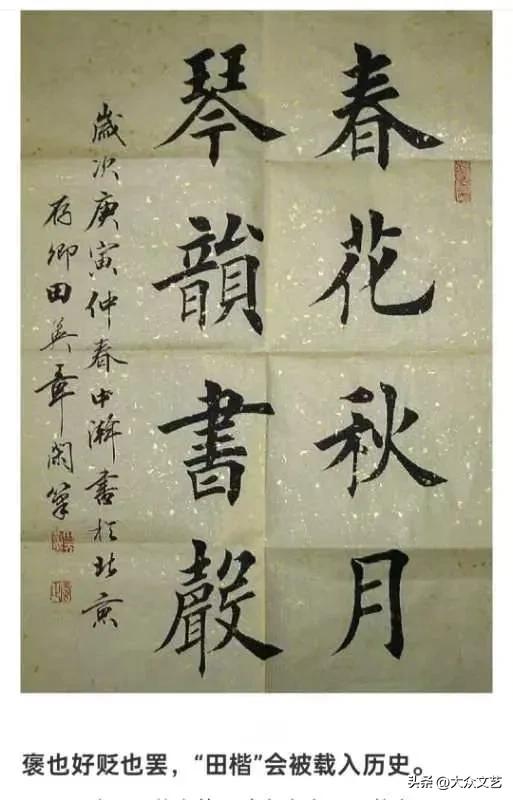 春花秋月
琴韻書聲
歲次庚寅仲春中澣書於北京
存卿田英章閑筆
褒也好贬也罢，“田楷”会被载入历史。
头条 @大众文艺